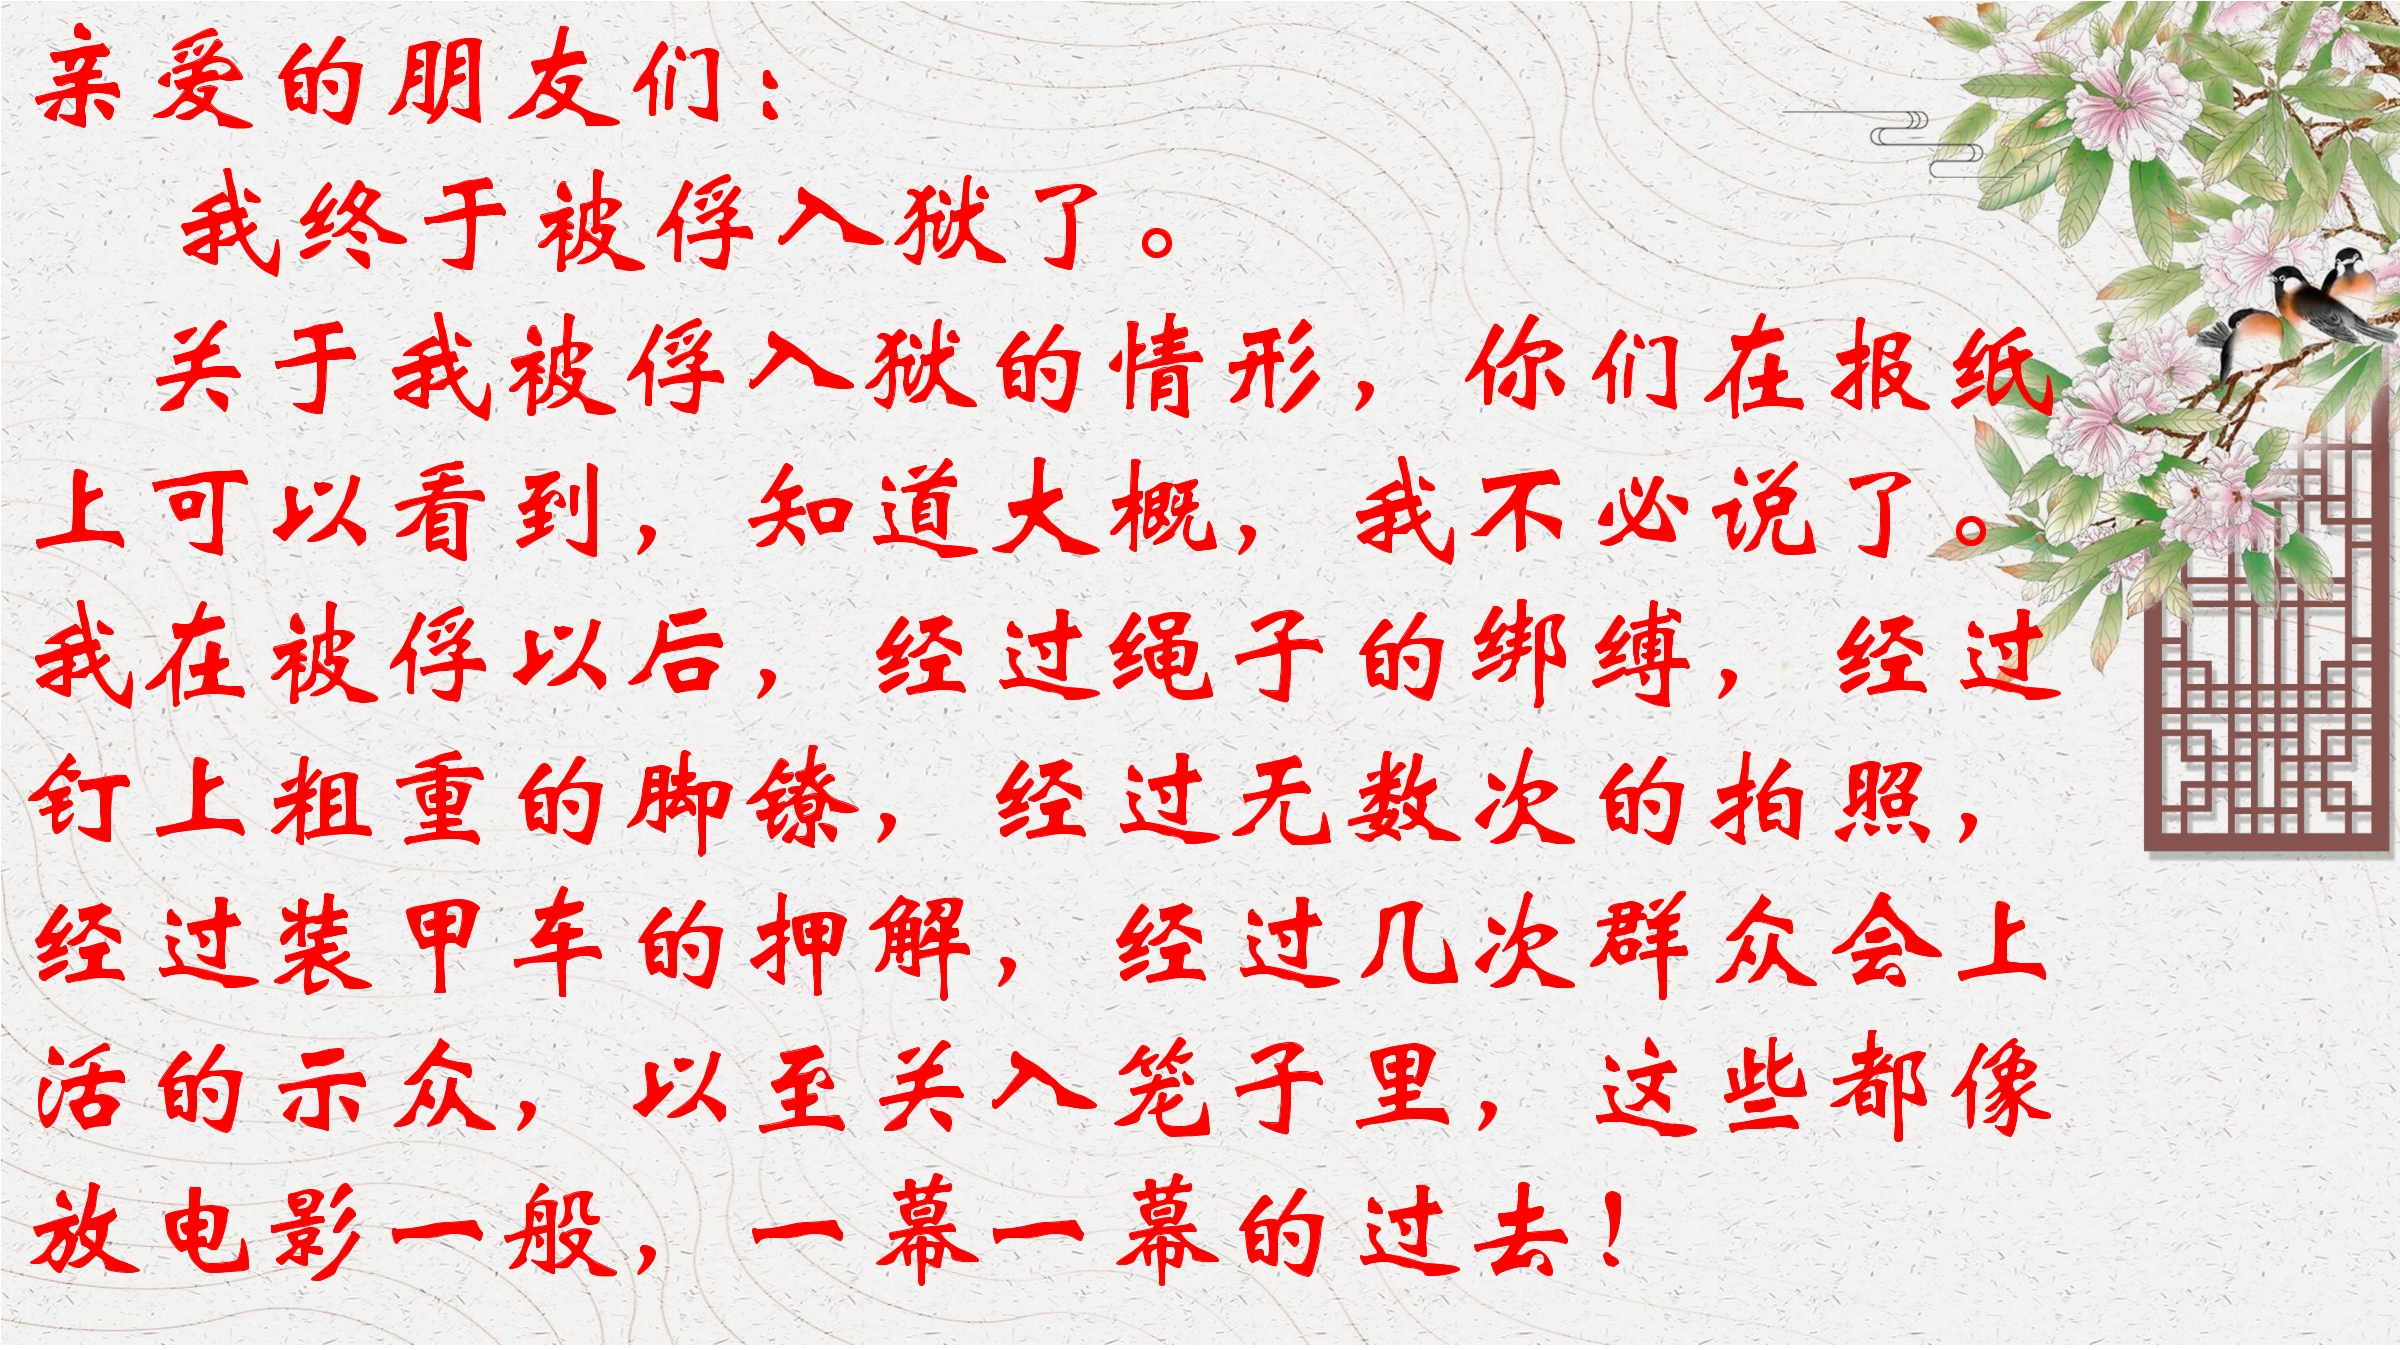 亲爱的朋友们：
我终于被俘入狱了。
关于我被俘入狱的情形，你们在报纸
上可以看到，知道大概，我不必说了。
我在被俘以后，经过绳子的绑缚，经过
钉上粗重的脚镣，经过无数次的拍照，
经过装甲车的押解，经过几次群众会上
活的示众，以至关入笼子里，这些都像
放电影一般，一幕一幕的过去！